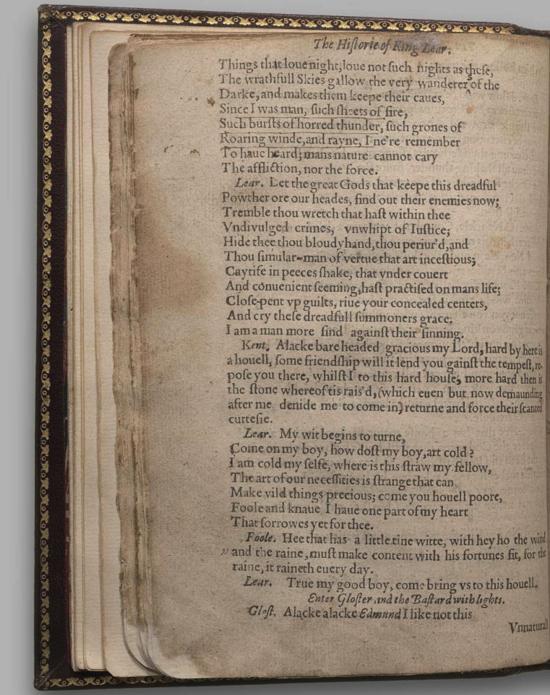 The Historie of King Lear.
Things that loue night, loue not such nights as these,
The wrathfull Skies gallow the very wanderer of the
Darke, and makes them keepe their caues,
Since I was man, such sheets of fire,
Such bursts of horred thunder, such grones of
Roaring winde, and rayne, I ne're remember
To haue heard; mans nature cannot cary
The affliction, nor the force.
Lear. Let the great Gods that keepe this dreadful
Powther ore our heades, find out their enemies now;
Tremble thou wretch that hast within thee
Vndivulged crimes, vnwhipt of Iustice;
Hide thee thou bloudy hand, thou periur'd, and
Thou simular-man of vertue that art incestious;
Caytife in peeces shake, that vnder couert
And conuenient seeming, hast practised on mans life;
Close-pent vp guilts, riue your concealed centers,
And cry these dreadfull summoners grace,
I am a man more sind against their sinning.
Kent, Alacke bare headed gracious my Lord, hard by here is
a houell, some friendship will it lend you gainst the tempest, re-
pose you there, whilst I to this hard house, more hard then is
the stone whereof tis rais'd, (which euen but now demaunding
after me denide me to come in) returne and force their scanted
curtesie.
Lear. My wit begins to turne,
Come on my boy, how dost my boy, art cold?
I am cold my selfe, where is this straw my fellow,
The art of our necessities is strange that can
Make vild things precious; come you houell poore,
Foole and knaue I haue one part of my heart
That sorrowes yet for thee.
Foole. Hee that has a little tine witte, with hey ho the wind
and the raine, must make content with his fortunes fit, for the
raine, it raineth euery day.
Lear. True my good boy, come bring vs to this houell.
Enter Gloster and the Bastard with lights.
Glost. Alacke alacke Edmund I like not this
Vnnatural